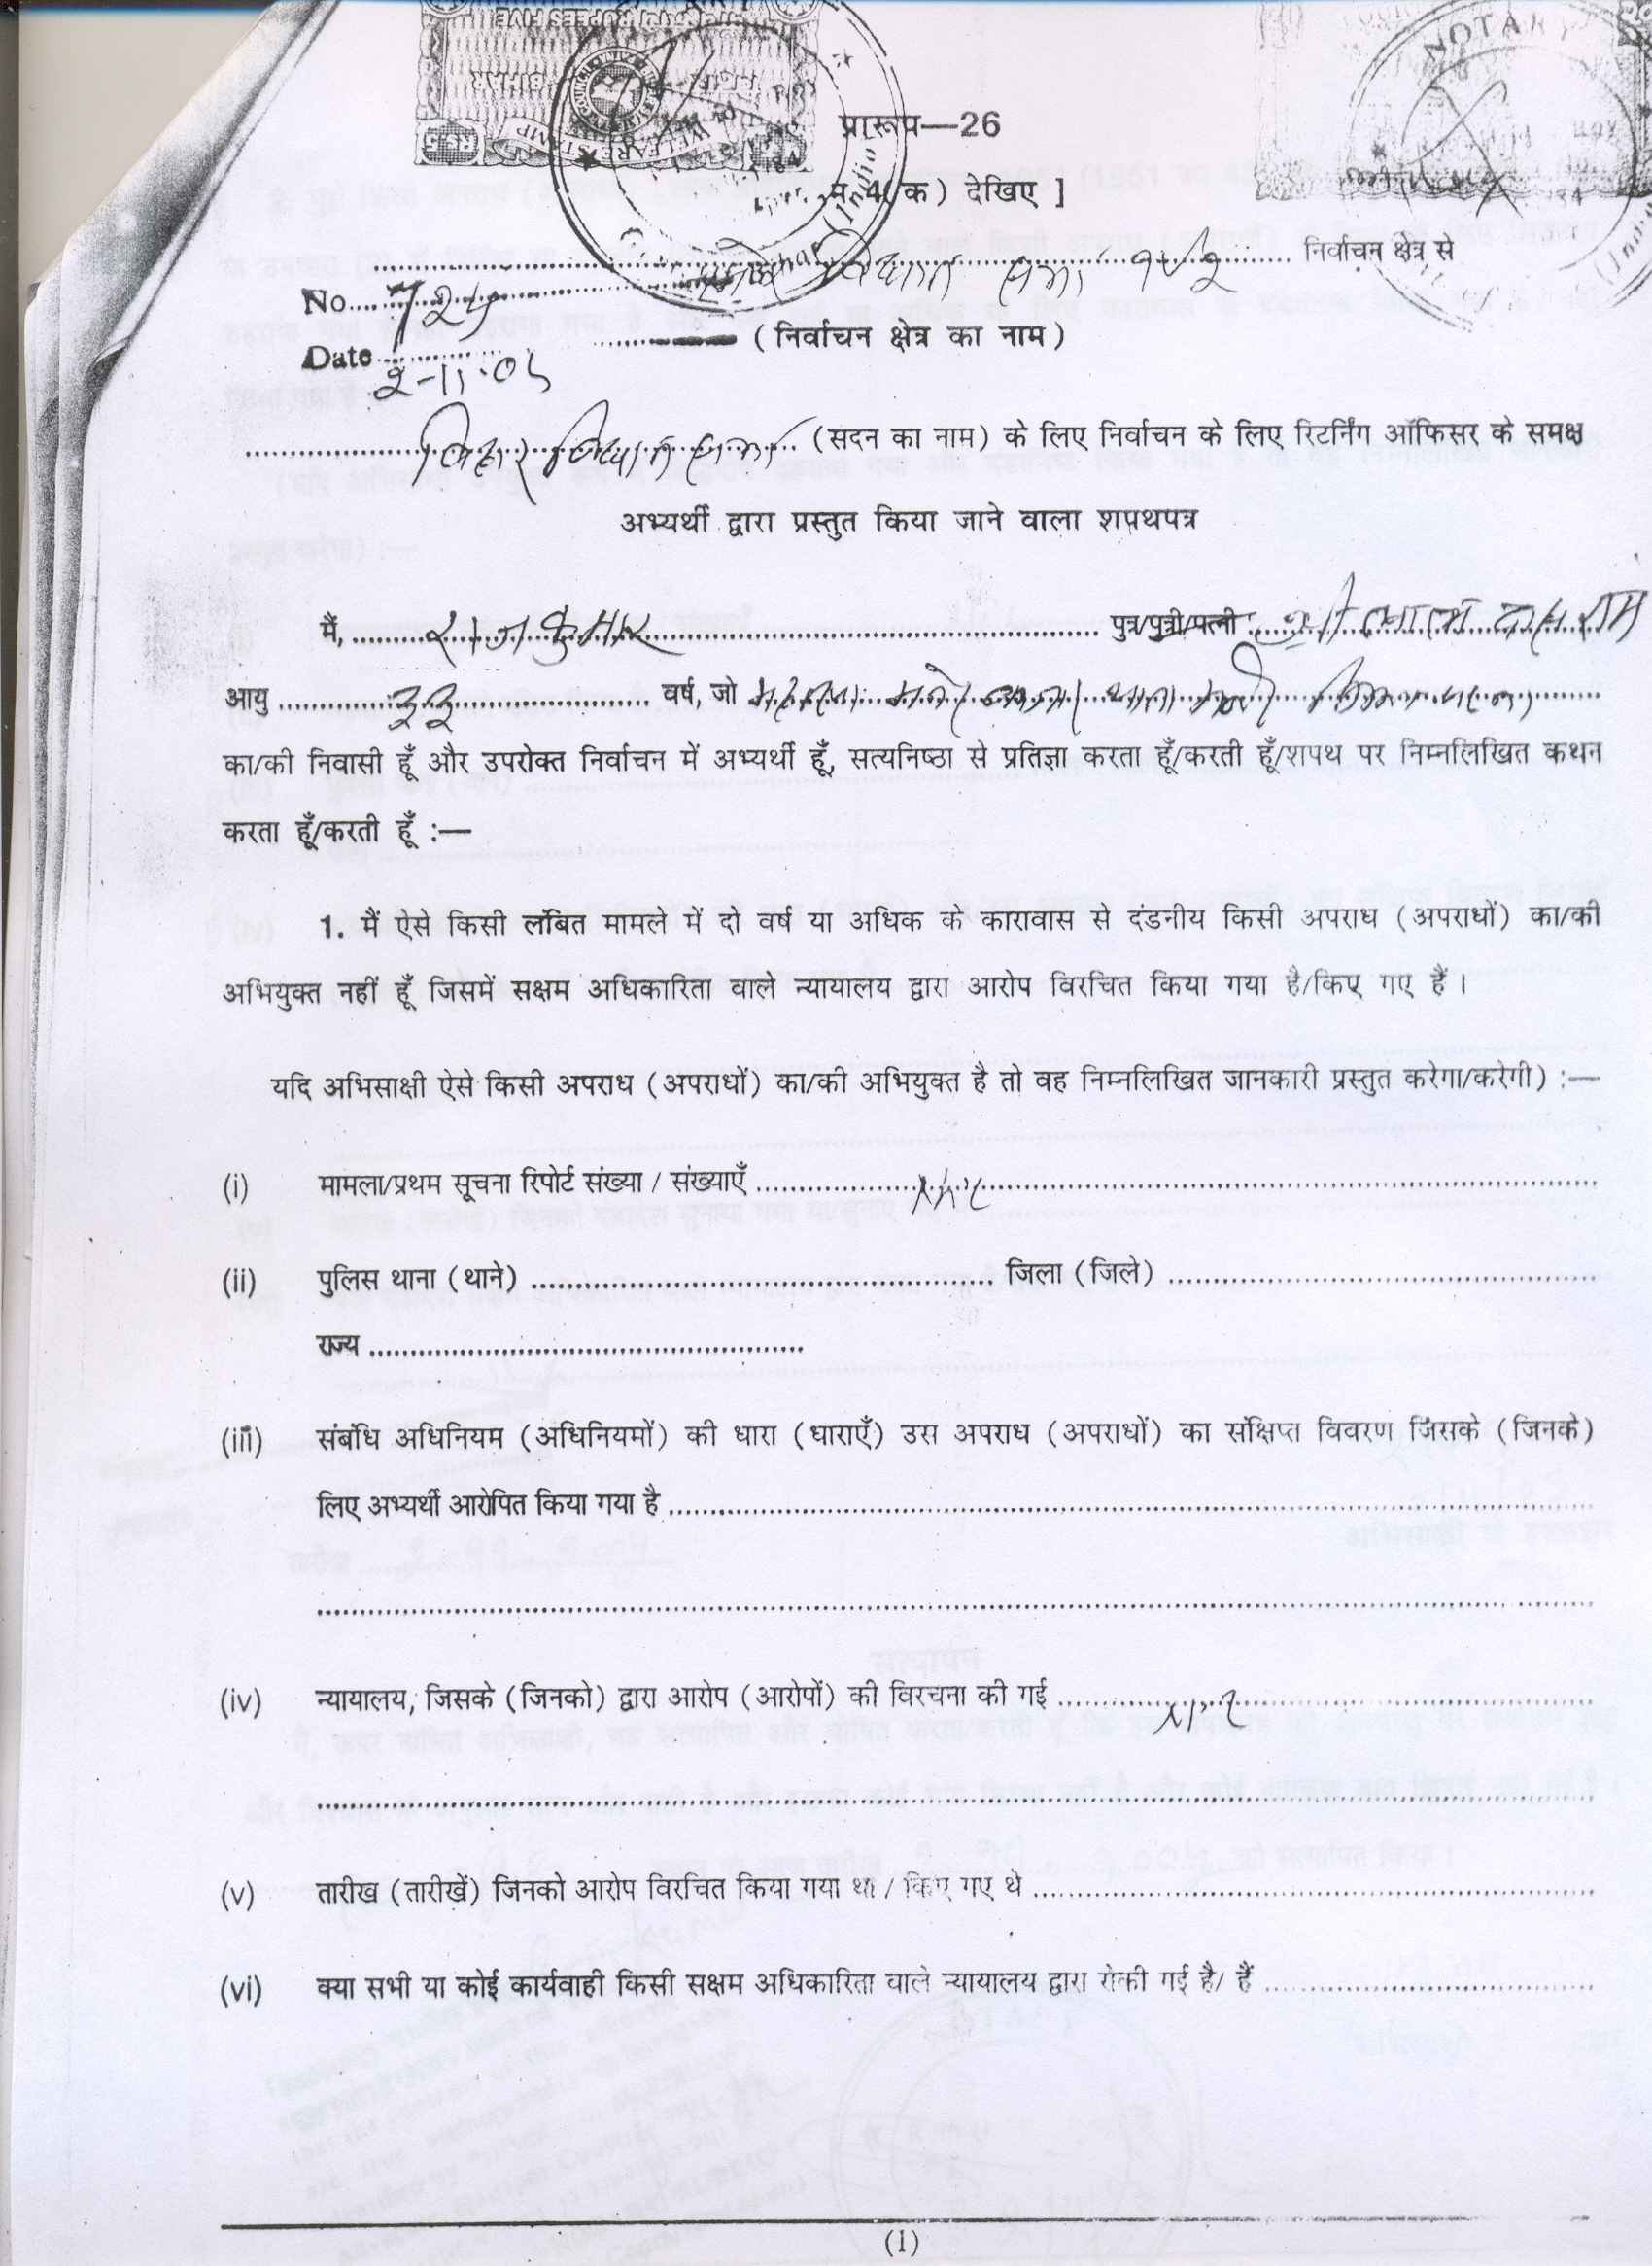 RUPEES FIVE
BIHAR
RS.5
WELFARE STAMP
NOTARY
प्रारूप—26
4(क) देखिए ]
विधान सभा निर्वाचन क्षेत्र से
No. 724
(निर्वाचन क्षेत्र का नाम)
Date 2-11-05
बिहार विधान सभा (सदन का नाम) के लिए निर्वाचन के लिए रिटर्निंग ऑफिसर के समक्ष
अभ्यर्थी द्वारा प्रस्तुत किया जाने वाला शपथपत्र
मैं, राजकुमार पुत्र/पुत्री/पत्नी श्री राम
आयु 33 वर्ष, जो
का/की निवासी हूँ और उपरोक्त निर्वाचन में अभ्यर्थी हूँ, सत्यनिष्ठा से प्रतिज्ञा करता हूँ/करती हूँ/शपथ पर निम्नलिखित कथन
करता हूँ/करती हूँ :—
1. मैं ऐसे किसी लंबित मामले में दो वर्ष या अधिक के कारावास से दंडनीय किसी अपराध (अपराधों) का/की
अभियुक्त नहीं हूँ जिसमें सक्षम अधिकारिता वाले न्यायालय द्वारा आरोप विरचित किया गया है/किए गए हैं ।
यदि अभिसाक्षी ऐसे किसी अपराध (अपराधों) का/की अभियुक्त है तो वह निम्नलिखित जानकारी प्रस्तुत करेगा/करेगी) :—
(i) मामला/प्रथम सूचना रिपोर्ट संख्या / संख्याएँ
(ii) पुलिस थाना (थाने) जिला (जिले)
राज्य
(iii) संबंधि अधिनियम (अधिनियमों) की धारा (धाराएँ) उस अपराध (अपराधों) का संक्षिप्त विवरण जिसके (जिनके)
लिए अभ्यर्थी आरोपित किया गया है
(iv) न्यायालय, जिसके (जिनको) द्वारा आरोप (आरोपों) की विरचना की गई
(v) तारीख (तारीखें) जिनको आरोप विरचित किया गया था / किए गए थे
(vi) क्या सभी या कोई कार्यवाही किसी सक्षम अधिकारिता वाले न्यायालय द्वारा रोकी गई है/ हैं
(1)